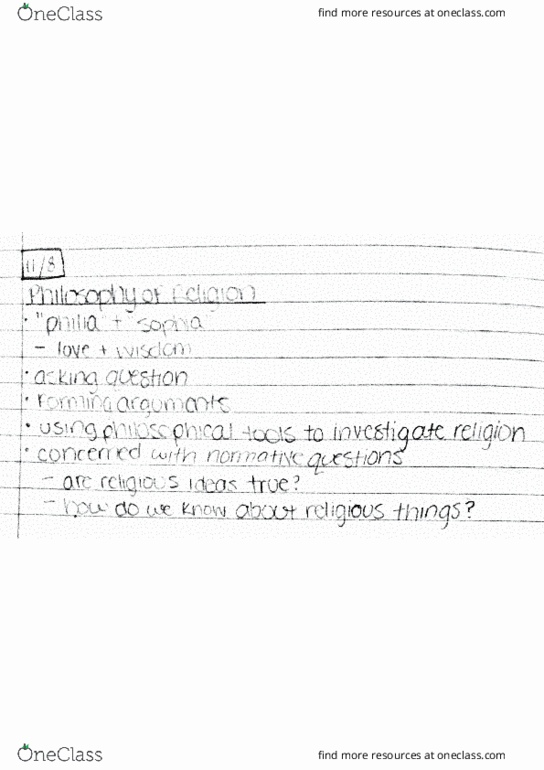 OneClass
find more resources at oneclass.com
11/8
Philosophy of Religion
• "philia" + "sophia"
- love + wisdom
• asking question
• forming arguments
• using philosophical tools to investigate religion
• concerned with normative questions
- are religious ideas true?
- how do we know about religious things?
OneClass
find more resources at oneclass.com